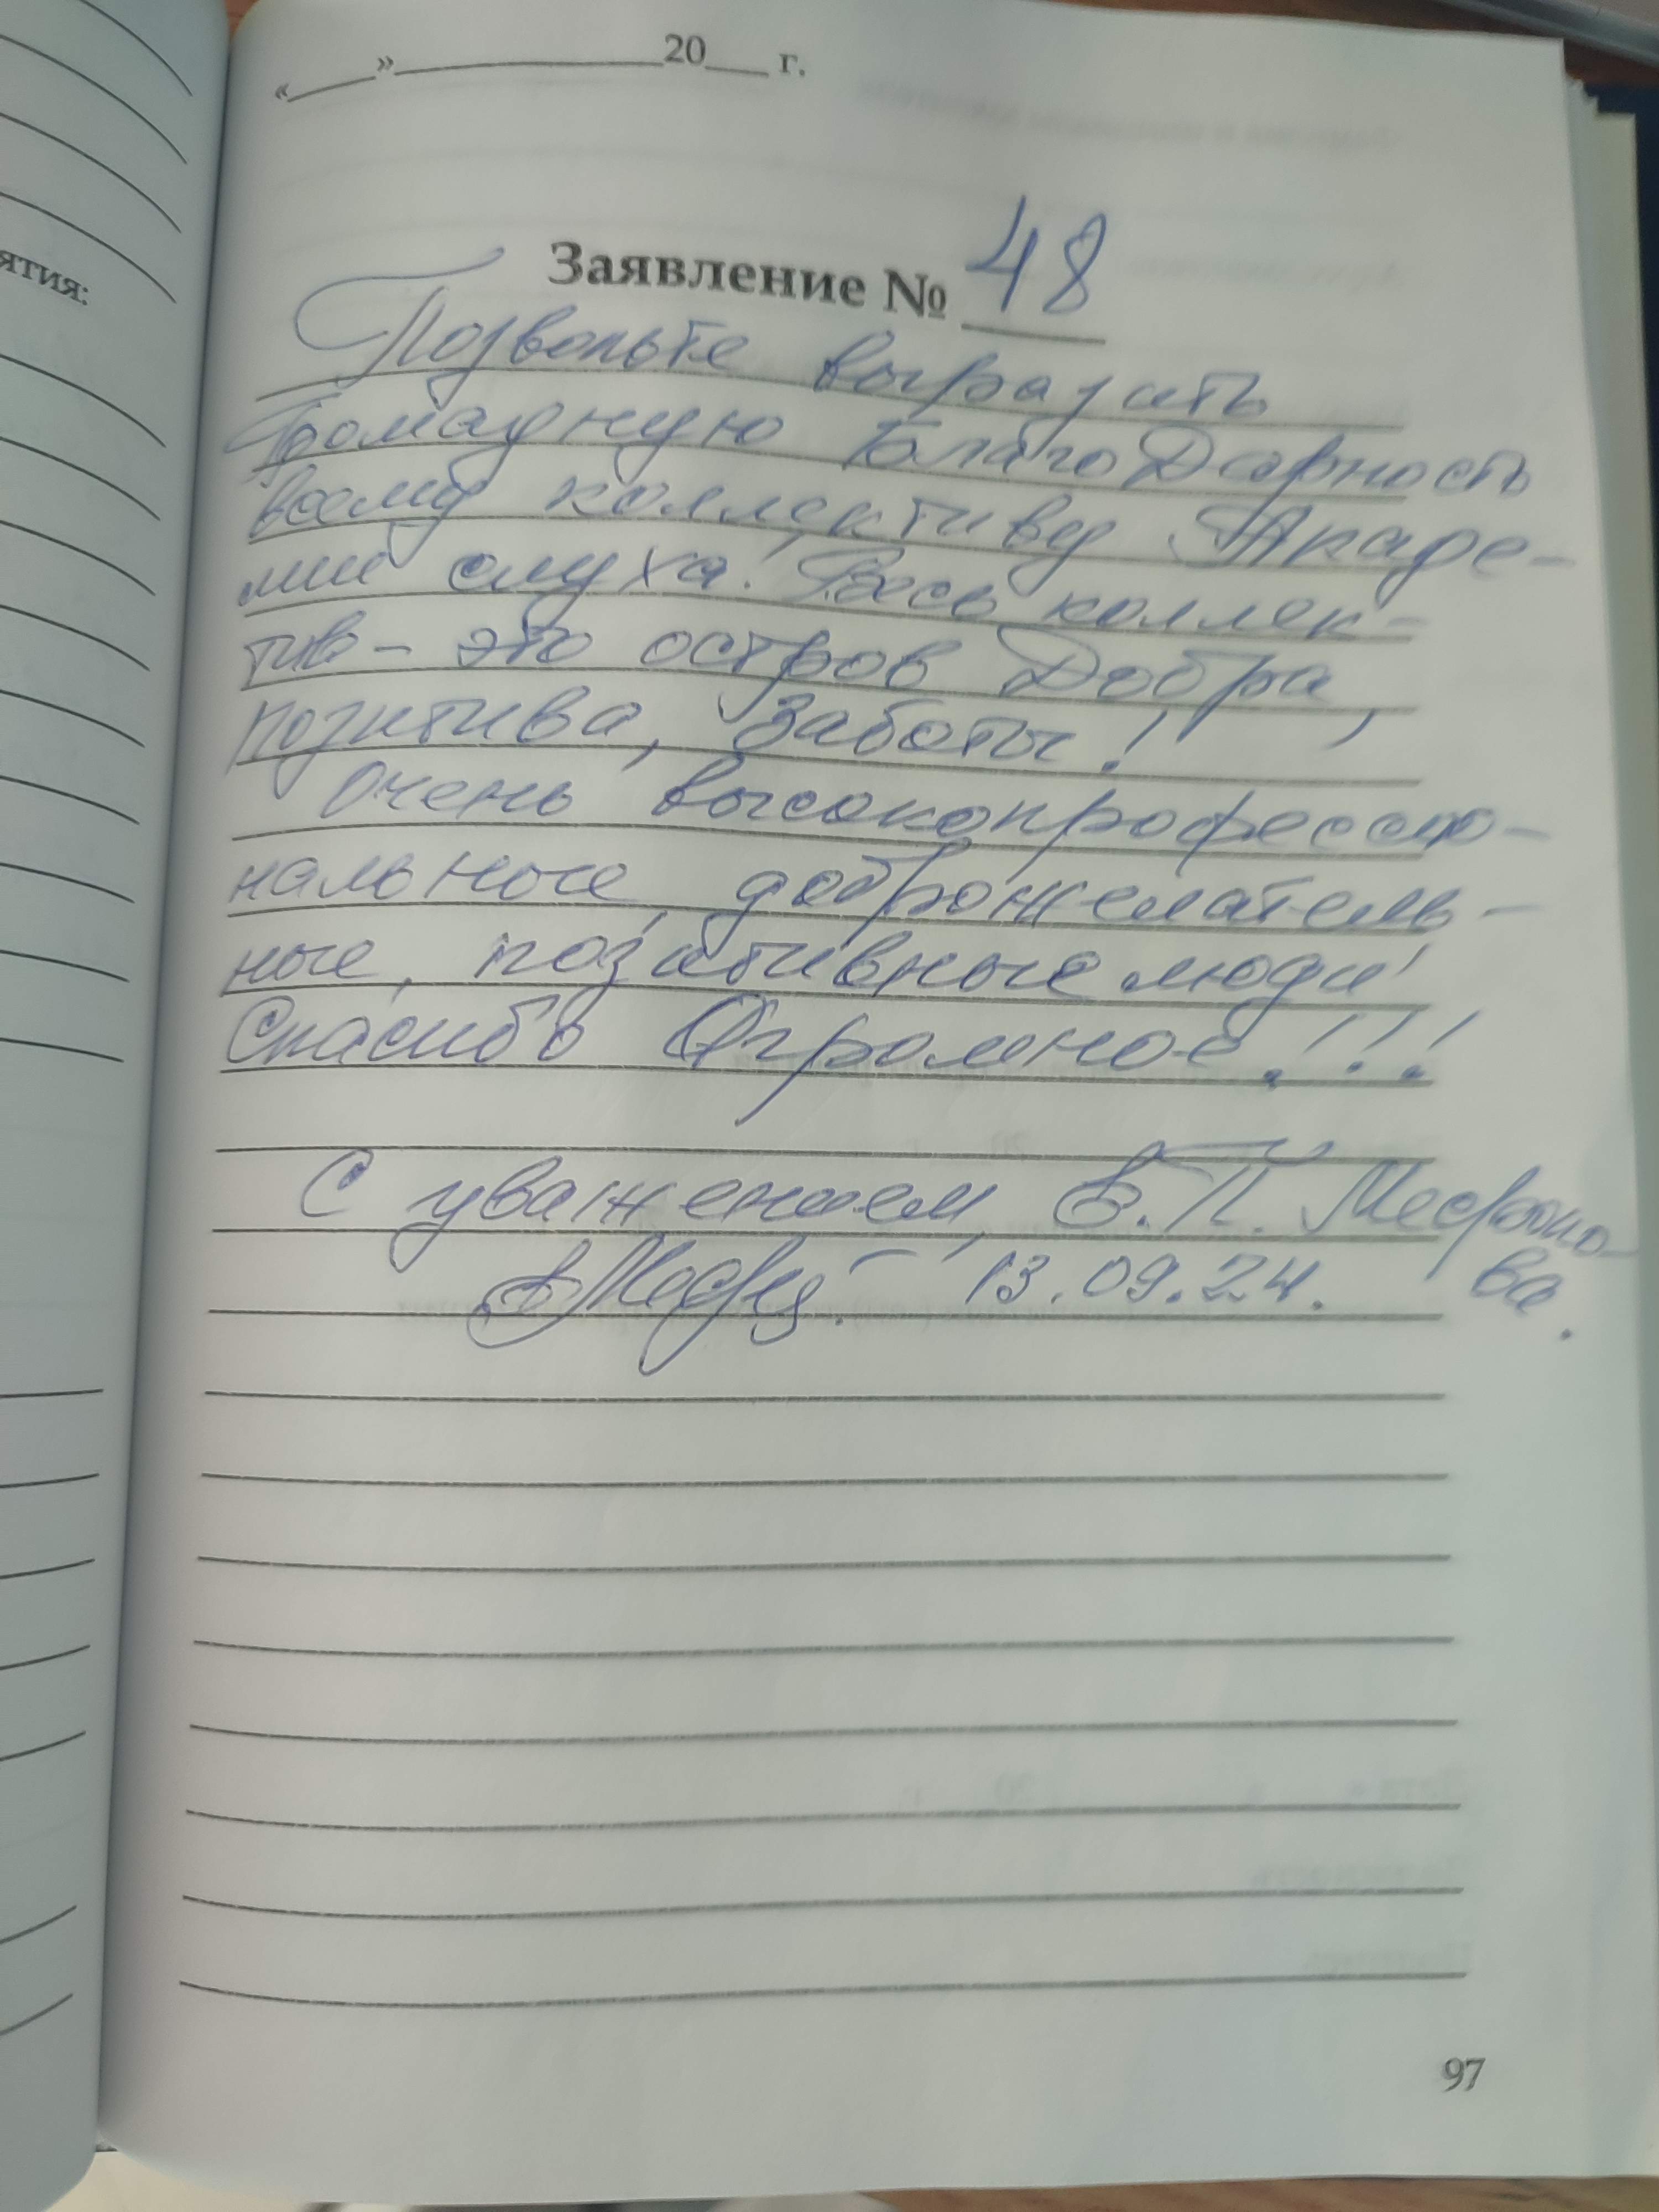 «____»______________20___ г.
ятия:
Заявление № 48
Позвольте выразить
громадную БлагоДарность
всему коллективу Акаде-
мии слуха! Весь коллек-
тив - это остров Добра,
позитива, Заботы!
Очень высокопрофессио-
нальные, доброжелатель-
ные, позитивные люди!
Спасибо Огромное!!!
С уважением, В.П.
13.09.24. ва.
97